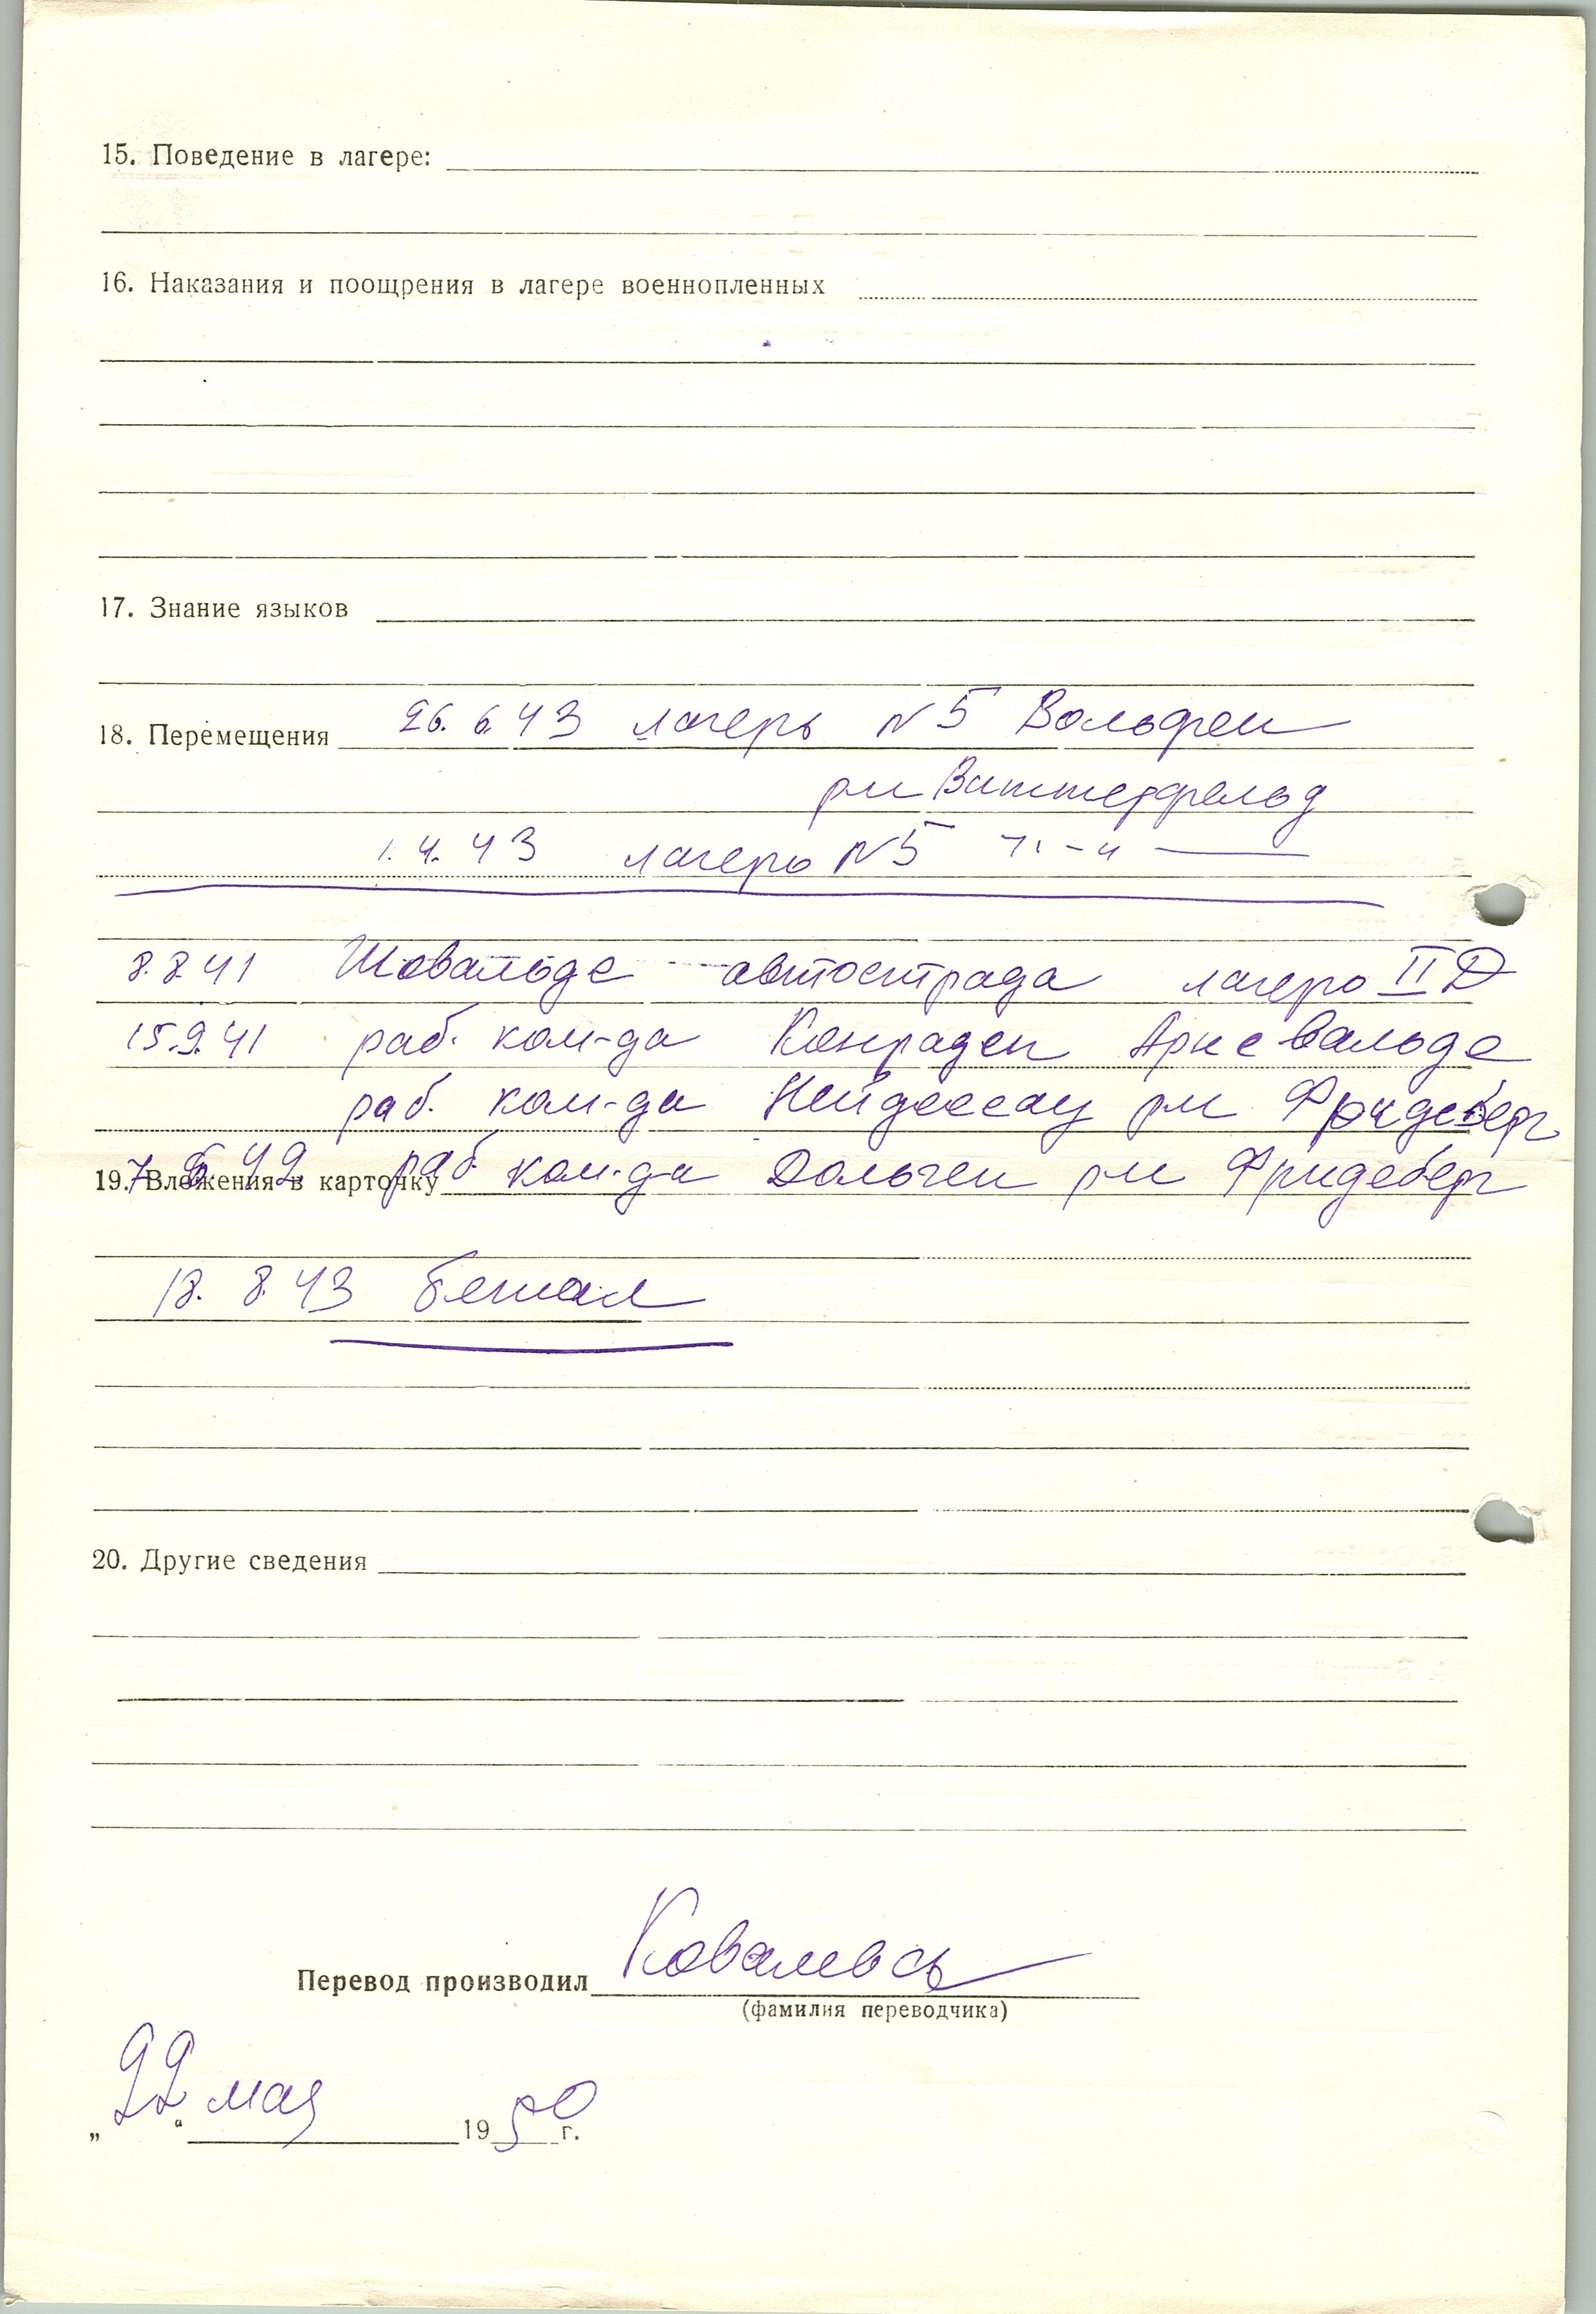 15. Поведение в лагере:
16. Наказания и поощрения в лагере военнопленных
17. Знание языков
18. Перемещения 26. 6. 43 лагерь N 5 Вольфен
рм Виттерфельд
1. 4. 43 лагерь N 5 -"-
8. 8. 41 автострада лагерь II Д
15. 9. 41 раб. ком-да Конраден Арнсвальде
раб. ком-да Нейдессау рм Фридеберг
7 6 42 раб. ком-да Дольген рм Фридеберг
19. Вложения в карточку
18. 8. 43 бежал
20. Другие сведения
Перевод производил Ковалевск
(фамилия переводчика)
„22“ мая 1950 г.